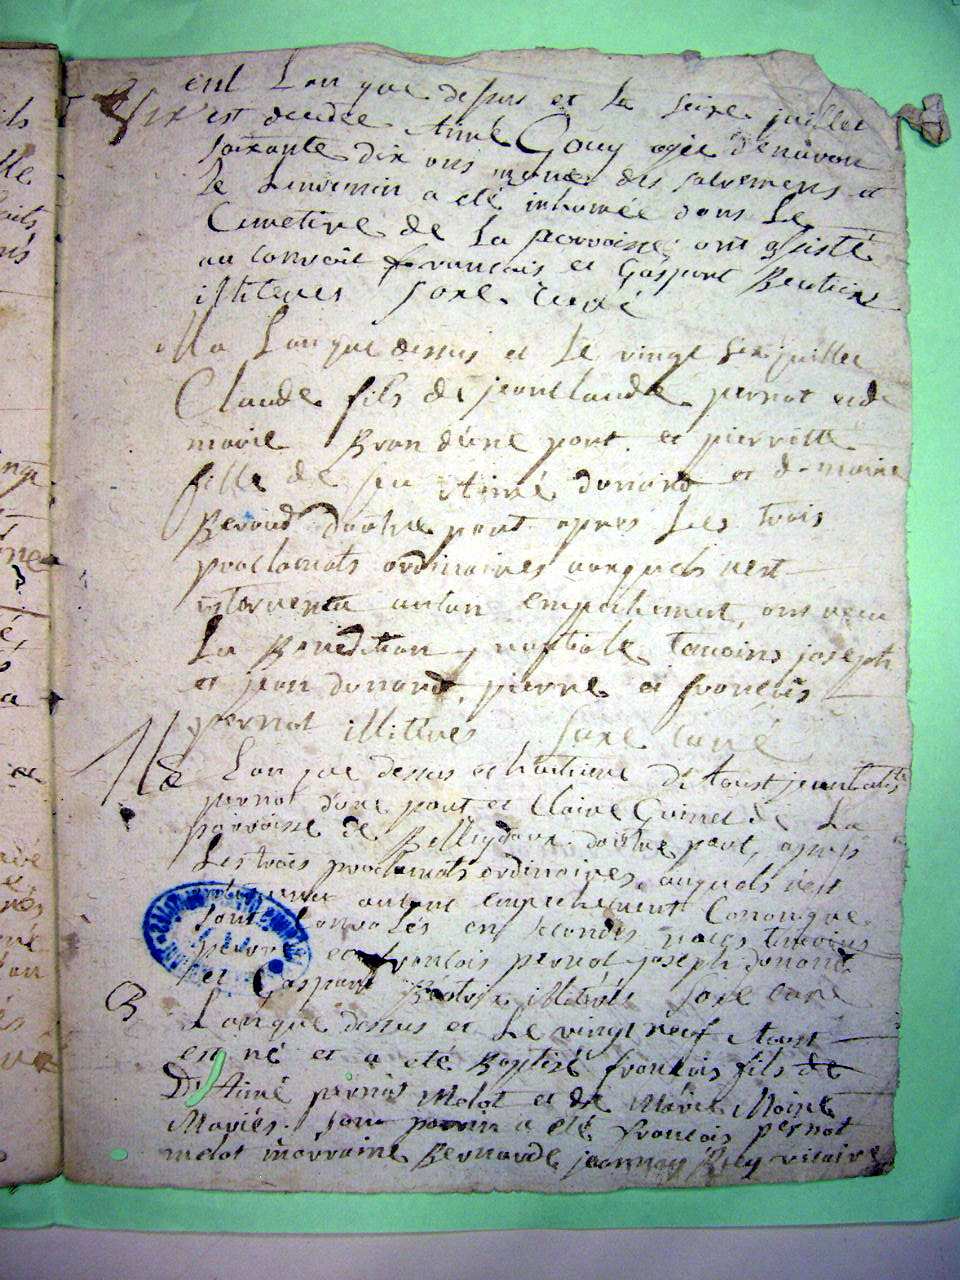 ent Lan que dessus et la seize juillet
est decedée Aimé Gouy agée d'environ
soixante dix ans munie des sacremens et
le Lendemin a eté inhumée dans Le
Cimetire de La parroisse, ont assisté
au convoit francois et Gaspart Beatrix
illiteres Saxe curé
Ma Lan que dessus et Le vingt six juillet
Claude fils de jean Claude pernot et de
marie Bran d'une part et pierrette
fille de feu Aimé donard et de marie
Beraud d'autre part apres Les trois
proclamats ordinaires auxquels n'est
intervenu aucun empechement, ont recu
La Benediction nuptiale temoins joseph
et jean donard, pierre et francois
pernot illitires Saxe curé
Ma Lan que dessus et huitieme d'Aoust jean
pernot d'une part et Claire Guinet de La
parroisse de d'autre part, apres
Les trois proclamats ordinaires, auxquels n'est
intervenu aucun empechement Canonique
sont en secondes noces temoins
pierre et francois pernot joseph donard
et Gaspard Beatrix illiterés Saxe curé
B Lan que dessus et Le vingt neuf Aoust
est né et a eté Baptisé francois fils de
D'Aimé pernot Melot et de Marie Moine
Mariés. son parrin a eté francois pernot
melot marraine Bernarde jeannay vicaire